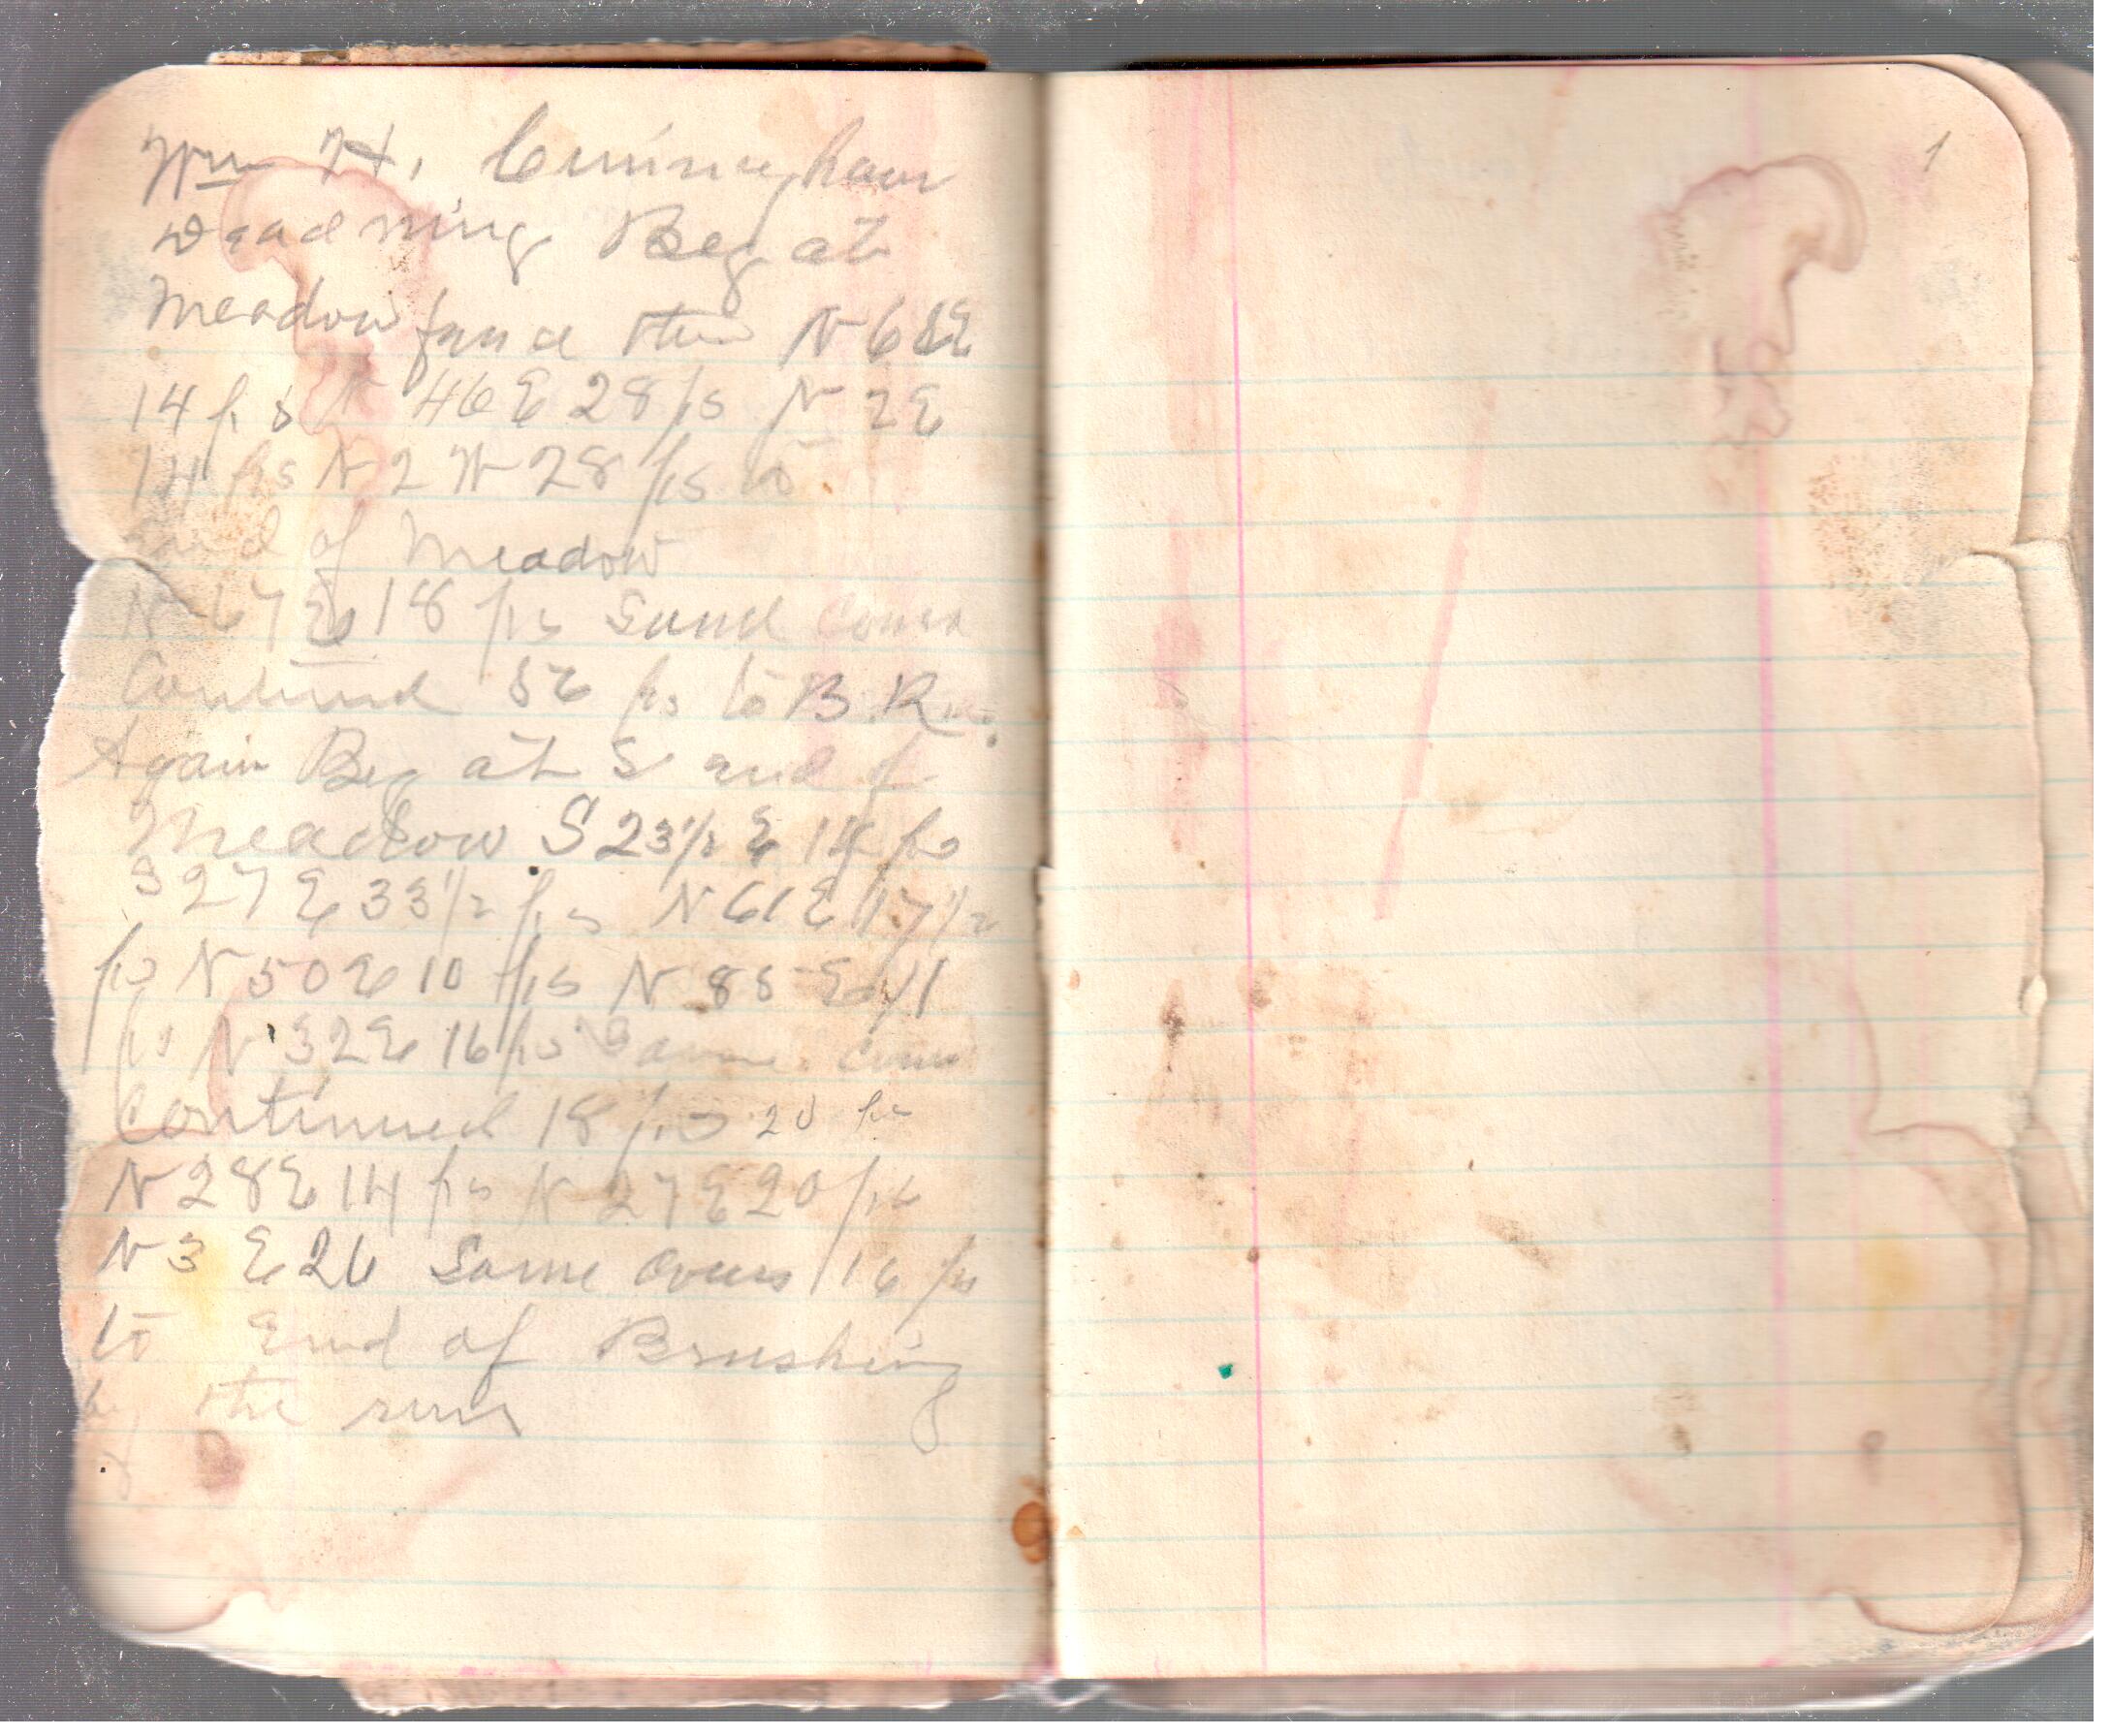 Wm H. Cuningham
Deadning Beg at
Meadow fence then N 6 E
14 ps N 46 E 28 ps N 2 E
14 ps N 2 W 28 ps to
end of Meadow
N 67 E 18 ps Same Cours
Continued 56 ps to B R
Again Beg at S end of
Meadow S 23 1/2 E 14 ps
S 27 E 33 1/2 ps N 61 E 17 1/2
ps N 50 E 10 ps N 88 E 11
ps N 32 E 16 ps Same Cours
Continued 18 ps 20 ps
N 28 E 14 ps N 27 E 20 ps
N 3 E 26 Same Cours 16 ps
to End of Brushing
by the run
1